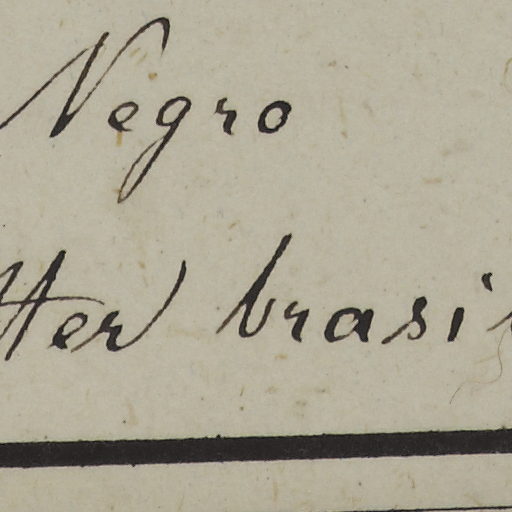 Negro
tter brasi